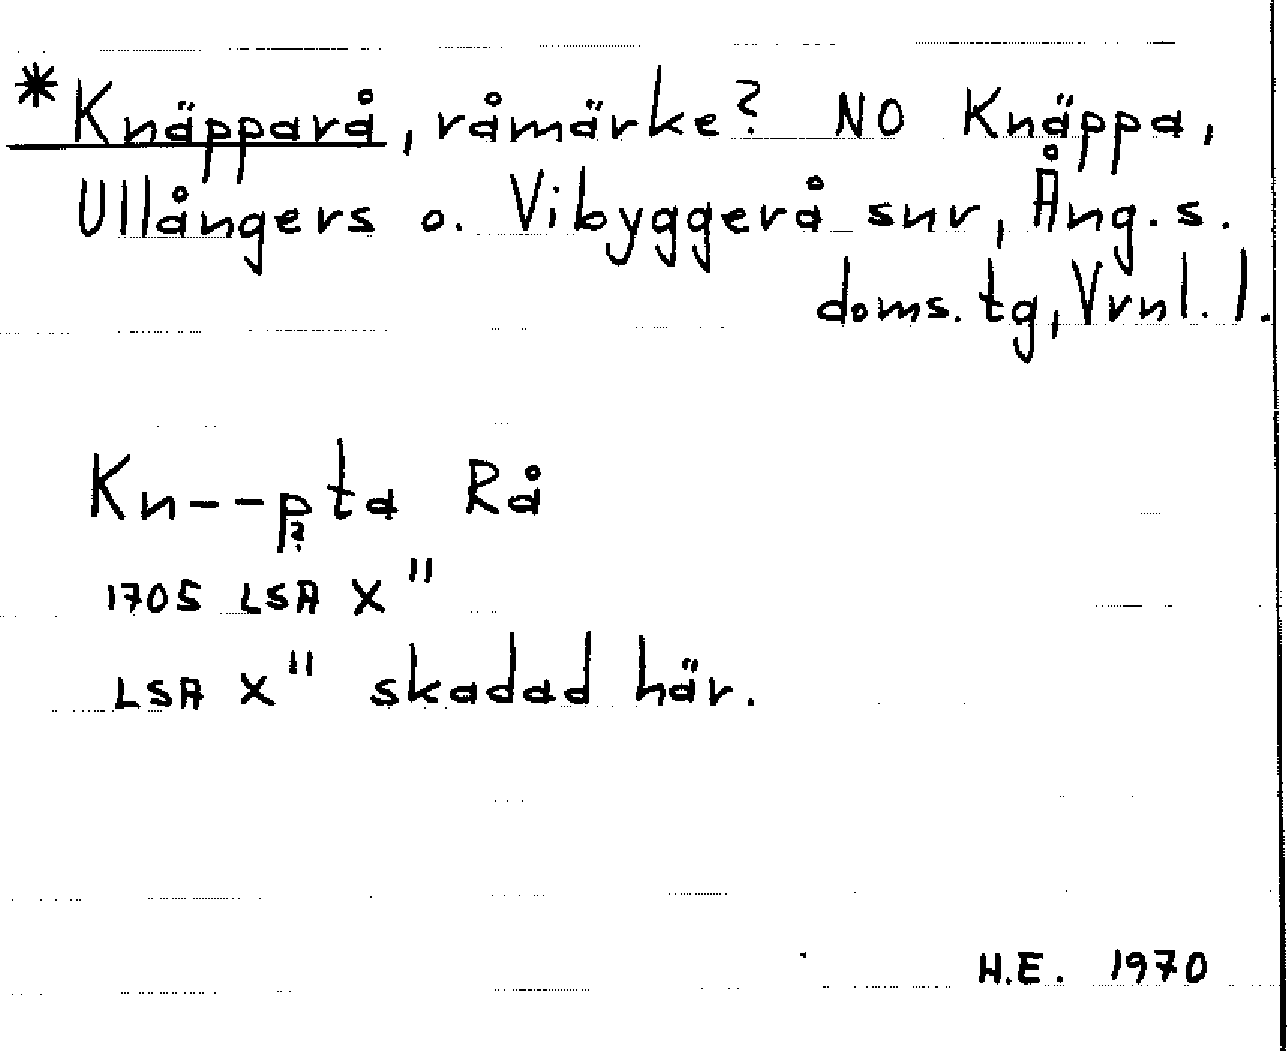 *Knäpparå, råmärke? NO Knäppa,
Ullångers o. Vibyggerå snr, Ång. s.
doms. tg, Vrnl. l.
Kn--pta Rå
?
1705 LSA X"
LSA X" skadad här.
H.E. 1970